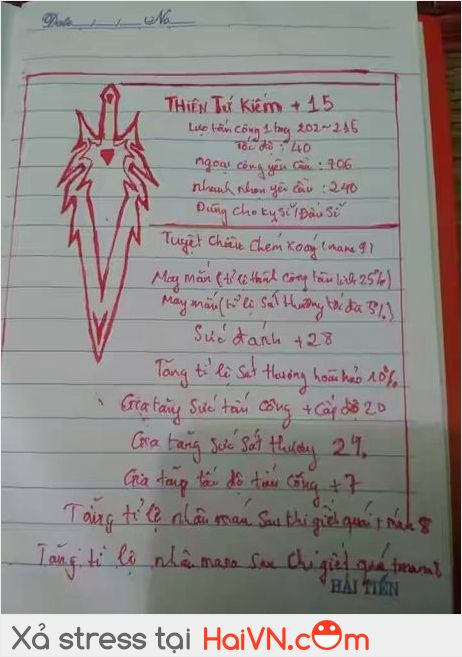 Date / / No
THIÊN TỨ KIẾM + 15
Lực tấn công 1 tay 202~215
Tốc độ : 40
ngoại công yêu cầu : 706
nhanh nhẹn yêu cầu : 240
Dùng cho kỵ sĩ/Đấu sĩ
Tuyệt chiêu chém xoáy (mana 9)
May mắn (tỉ lệ thành công tâm linh 25%)
May mắn (tỉ lệ sát thương tối đa 5%)
Sức đánh +28
Tăng tỉ lệ sát thương hoàn hảo 10%
Gia tăng sức tấn công + cấp độ 20
Gia tăng sức sát thương 2%
Gia tăng tốc độ tấn công +7
Tăng tỉ lệ nhận máu sau khi giết quái 8
Tăng tỉ lệ nhân mana sau chi giết quá
HẢI TIẾN
Xả stress tại HaiVN.com